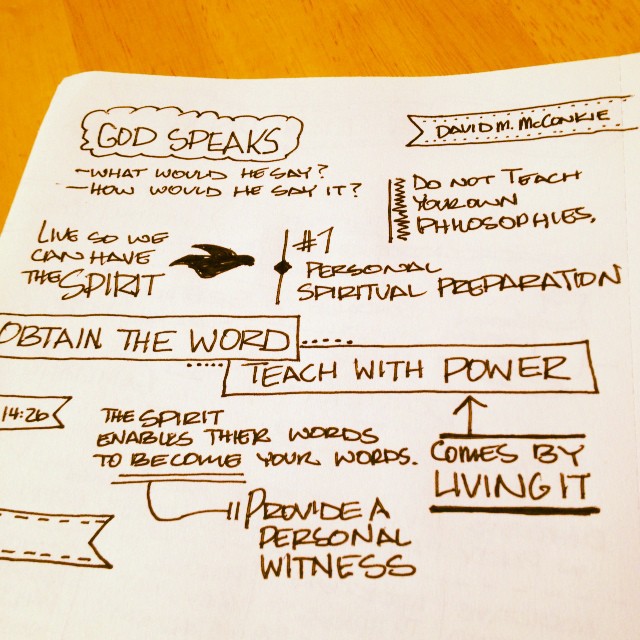 GOD SPEAKS
DAVID M. MCCONKIE
-WHAT WOULD HE SAY?
-HOW WOULD HE SAY IT?
DO NOT TEACH
YOUR OWN
PHILOSOPHIES.
LIVE SO WE
CAN HAVE
THE SPIRIT
#1
PERSONAL
SPIRITUAL PREPARATION
OBTAIN THE WORD
TEACH WITH POWER
14:26
THE SPIRIT
ENABLES THIER WORDS
TO BECOME YOUR WORDS.
COMES BY
LIVING IT
PROVIDE A
PERSONAL
WITNESS